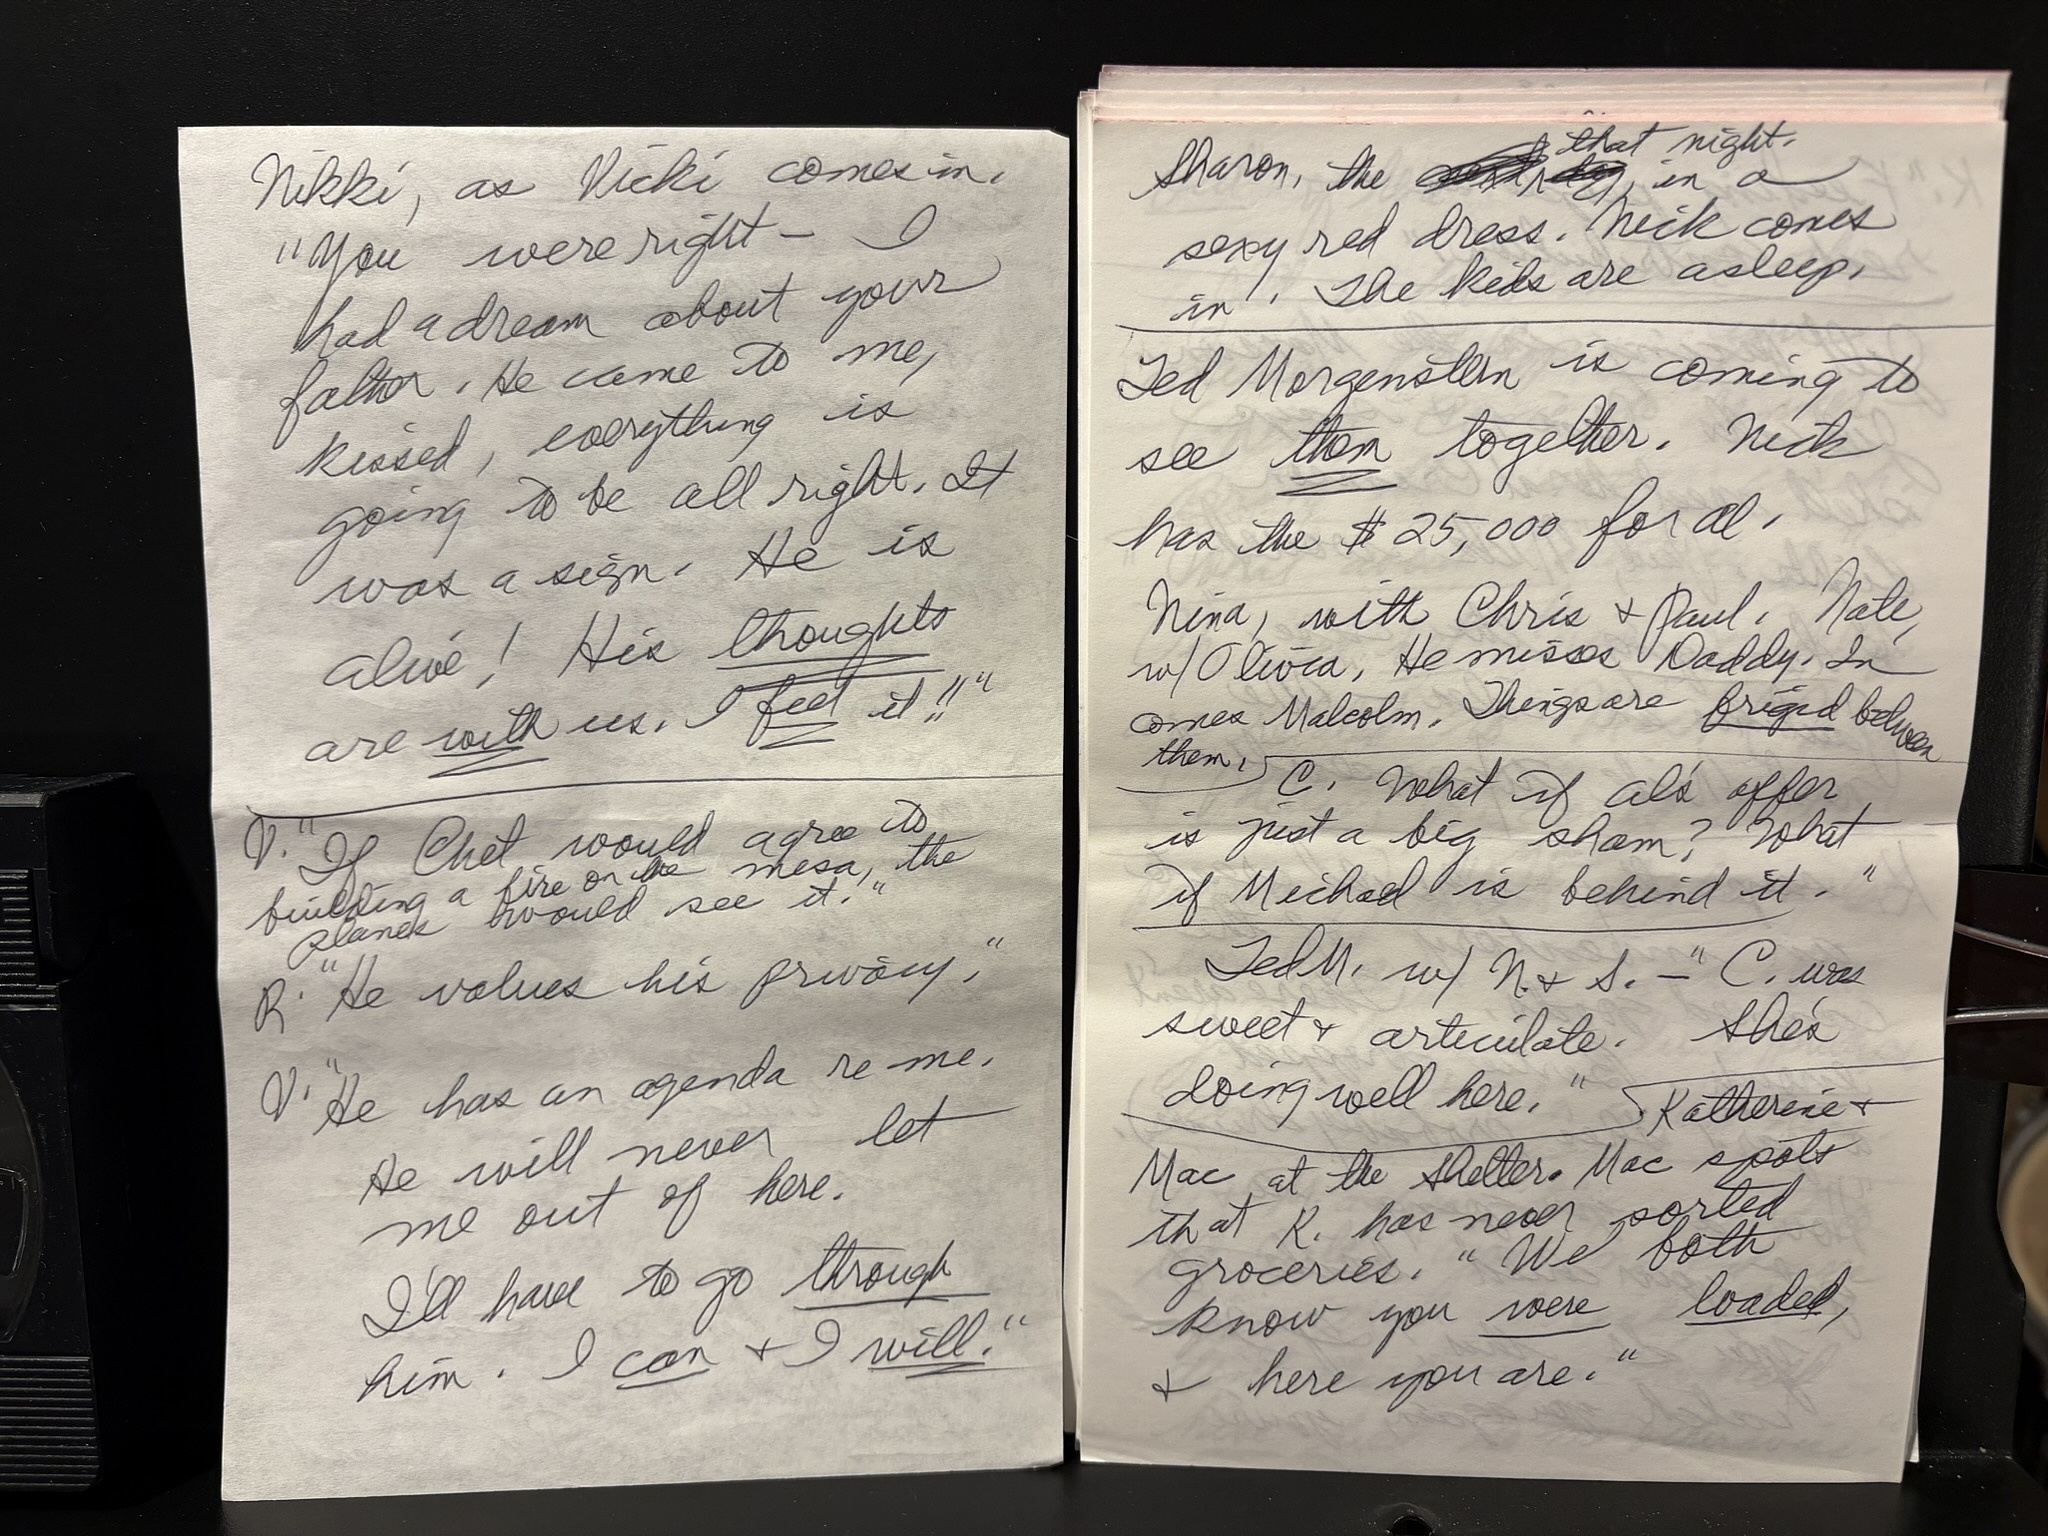 Nikki, as Vicki comes in.
"You were right – I
had a dream about your
father. He came to me,
kissed, everything is
going to be all right. It
was a sign. He is
alive! His thoughts
are with us. I feel it!!"
V. "If Chet would agree to
building a fire on the mesa, the
planes would see it."
R. "He values his privacy."
V. "He has an agenda re me.
He will never let
me out of here.
I'll have to go through
him. I can & I will."
that night.
Sharon, the in a
sexy red dress. Nick comes
in. The kids are asleep.
Ted Morgenstern is coming to
see them together. Nick
has the $25,000 for al.
Nina, with Chris & Paul. Nate,
w/ Olivia. He misses Daddy. In
comes Malcolm. Things are frigid between
them.
C. What if al's offer
is just a big sham? What
if Michael is behind it."
Ted M. w/ N. & S. – "C. was
sweet & articulate. She's
doing well here."
Katherine &
Mac at the shelter. Mac spots
that K. has never sorted
groceries. "We both
know you were loaded,
& here you are."